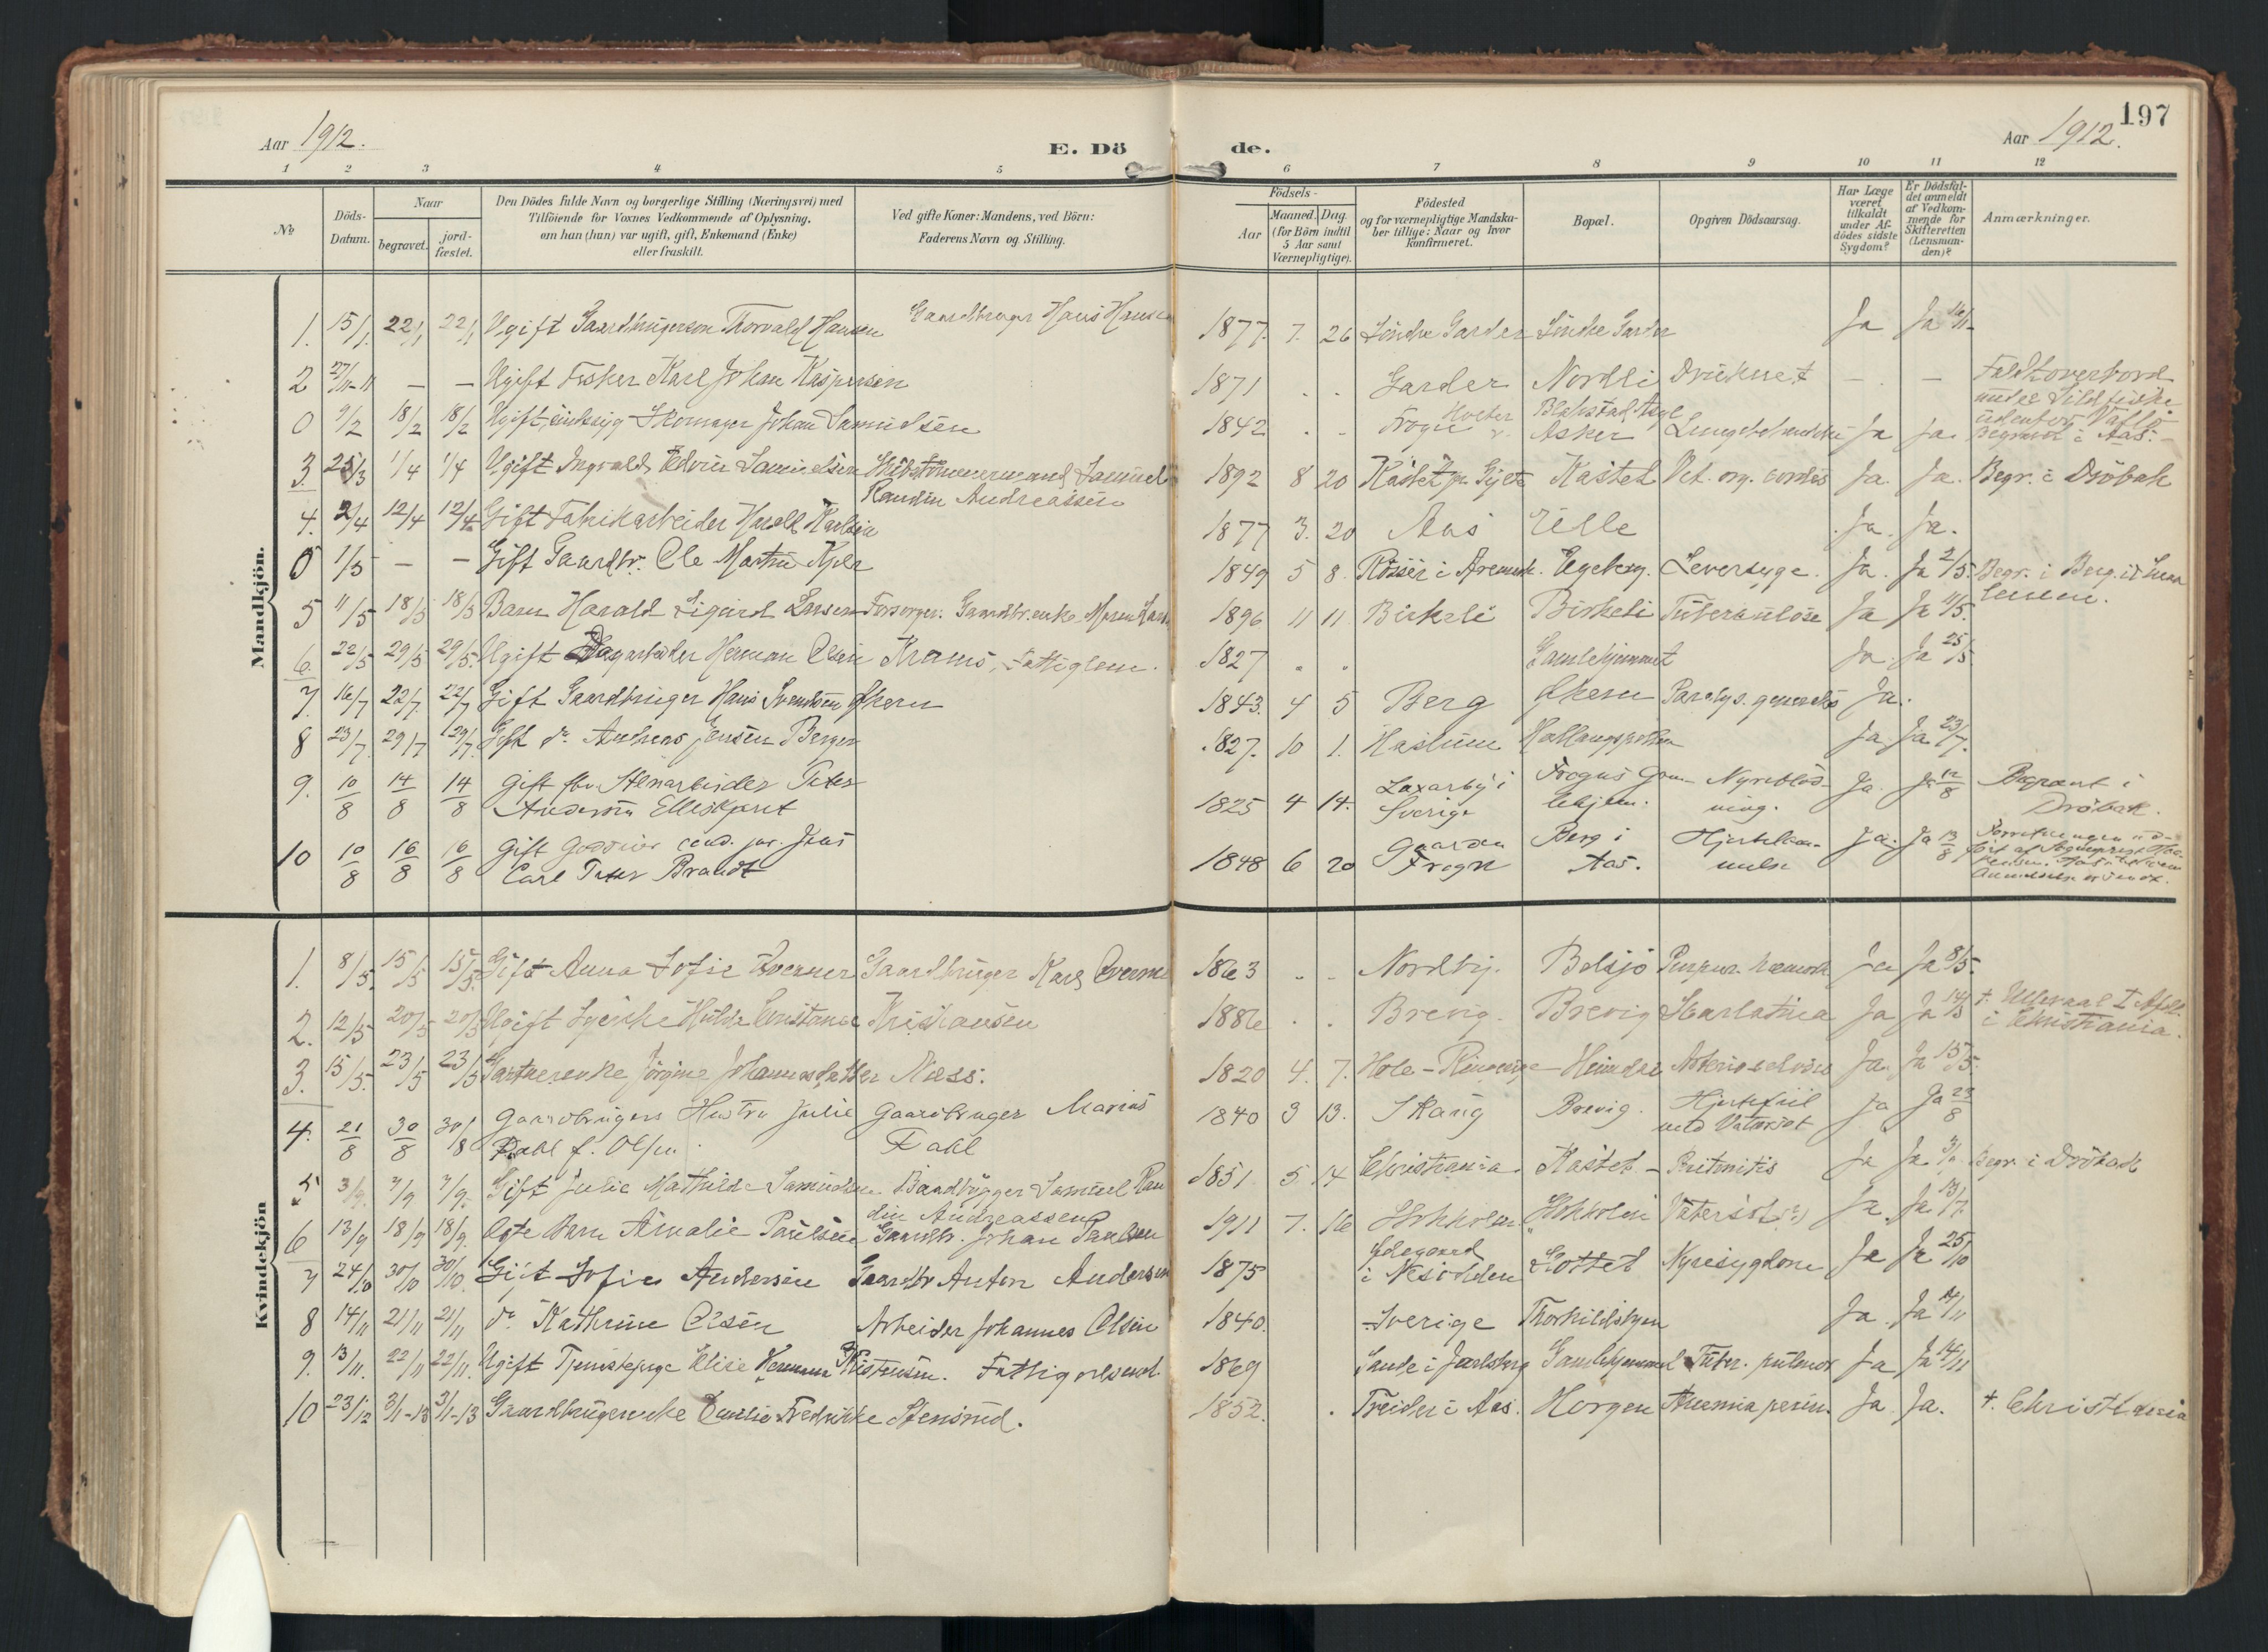 197
Aar 1912.
E. Dö de.
Aar 1912.
1 2 3 4 5 6 7 8 9 10 11 12
No
Döds-Datum.
Naar
begravet.
jord-fæstet.
Den Dödes fulde Navn og borgerlige Stilling (Næringsvei) med
Tilföiende for Voxnes Vedkommende af Oplysning,
om han (hun) var ugift, gift, Enkemand (Enke)
eller fraskilt.
Ved gifte Koner: Mandens, ved Börn:
Faderens Navn og Stilling.
Födsels-
Aar
Maaned. Dag.
(for Börn indtil
5 Aar samt
Værnepligtige).
Födested
og for værnepligtige Mandska-
ber tillige: Naar og hvor
konfirmeret.
Bopæl.
Opgiven Dödsaarsag.
Har Læge
været
tilkaldt
under Af-
dödes sidste
Sygdom?
Er Dödsfal-
det anmeldt
af Vedkom-
mende for
Skifteretten
(Lensman-
den)?
Anmærkninger.
Mandkjön.
1. 15/1. 22/1 22/1 Ugift Gaardbrugerson Thorvald Hansen Gaardbruger Hans Hansen 1877. 7. 26 Söndre Garder Söndre Garder Ja Ja 16/1
2 27/11-11 — — Ugift Fisker Karl Johan Kaspersen 1871 . . Garder Nordli Druknet — — Faldt overbord
under Sildfiske
udenfor Vallö
0 9/2 18/2 18/2 Ugift sindssyg Skomager Johan Samuelsen 1842 . . Frogn Holter Blakstad Asyl
Asker Ja Ja. Begravet i Aas.
3. 25/3 1/4 1/4 Ugift Ingvald Edvin Samuelsen Skibstömmermand Samuel
Randin Andreassen 1892 8 20 Kastet Kastet Vit. org. cordis Ja. Ja. Begr. i Dröbak
4. 2/4 12/4 12/4 Gift Fabrikarbeider Harald Karlsen 1877 3. 20 Aas Ja. Ja.
0 1/5 — — Gift Gaardbr. Ole Martin 1849 5 8. Egeberg. Leversyge. Ja. Ja 2/5. Begr. i Berg
5 11/5 18/5 18/5 Barn Harald Sigurd Larsen Forsorger: Gaardbr.enke Maren 1896 11 11 Birkeli Birkeli Tuberculose Ja Ja 11/5.
6. 22/5 29/5 29/5. Ugift Dagarbeider Herman Olsen Krams, Fattiglem. 1827 " " Gamlehjemmet Ja. Ja 25/5
7. 16/7 22/7. 22/7 Gift Gaardbruger Hans Svendsen Økern 1843. 4 5 Berg Økern Paralys. generalis Ja.
8 23/7. 29/7 29/7. Gift do. Andreas Jensen Berger 1827. 10 1. Haslum Hallangspollen Ja Ja 23/7.
9. 10/8 14/8 14/8 Gift fhv Stenarbeider Peter
Anderson Elleskjæret 1825 4 14. Laxarby i
Sverige Frogns Gam-
lehjem. Nyreblöd-
ning. Ja. Ja 12/8 Begravet i
Dröbak.
10 10/8 16/8 16/8 Gift Godseier cand. jur. Jens
Carl Peter Brandt 1848 6 20 Gaarden
Frogn Berg i
Aas. Hjertelam-
melse Ja. Ja 13/8 Forretningen ud-
fört af Sogneprest
Kvindekjön
1. 8/5. 15/5 15/5. Gift Anna Sofie Kverner Gaardbruger Karl 1863 . . Nordby. Belsjö Purpur. hæmorh Ja Ja 8/5.
2. 12/5 20/5 20/5 Ugift Syerske Hulda Constance Kristiansen 1886 . . Brevig. Brevig Skarlatina Ja Ja 14/5 †. Ullevaal I Afdl.
i Christiania.
3. 15/5. 23/5 23/5 Gartnerenke Jörgine Johannesdatter Næss. 1820 4. 7. Hole-Ringerige Heimdal Ja. Ja 15/5.
4. 21/8 30/8 30/8 Gaardbrugers Hustru Julie
Dahl f. Olsen Gaardbruger Marius
Dahl 1840 3 13. Skaug Brevig. Hjertefeil
med Vatersot Ja Ja 23/8
5 3/9. 7/9 7/9. Gift Julie Mathilde Samuelsen Baadbygger Samuel Ran
din Andreassen 1851 5 14 Christiania. Kastet. Peritonitis Ja Ja Begr. i Dröbak
6 13/9 18/9 18/9. Ægte Barn Amalie Paulsen Gaardbr. Johan Paulsen 1911 7. 16 Stokholm Stokholm Vatersot (?) Ja. Ja 13/9.
7 24/10 30/10 30/10. Gift Sofie Andersen Gaardbr Anton Andersen 1875 Ødegaard
i Nesodden Slottet Nyresygdom Ja Ja 25/10
8 14/11 21/11 21/11 do. Kathrine Olsen Arbeider Johannes Olsen 1840. Sverige Thorkildsbyen Ja. Ja 14/11
9. 13/11. 22/11 22/11. Ugift Tjenestepige Elise Hermana Kristensen. Fattigunderst. 1869 Sande i Jarlsberg Gamlehjemmet Tuber. pulmon Ja Ja 14/11
10 23/12 3/1-13 3/1-13 Gaardbrugerenke Emilie Fredrikke Stensrud. 1852. . Treider i Aas. Horgen Anæmia pernic. Ja Ja. †. Christiania